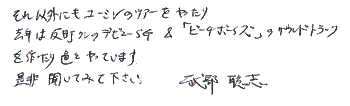 それ以外にもユーミンのツアーをやったり
去年は反町クンのデビューSG & 「ビーチボーイズ」のサウンドトラック
を作ったり色々やっています
是非聞いてみて下さい。 武部聡志